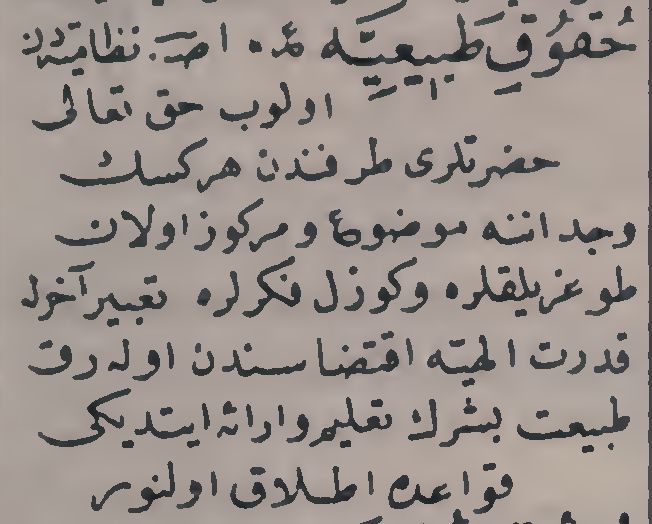 حُقوُقِ طَبيعِيَّه اصطلاحات نظامیه‌دن
اولوب حق تعالى
حضرتلرى طرفندن هركسك
وجداننه موضوع ومركوز اولان
طوغریلقلره وكوزل فكرلره تعبیر آخرله
قدرت الهیّه اقتضاسندن اوله‌رق
طبیعت بشرك تعلیم وارائه ایتدیكى
قواعده اطلاق اولنور